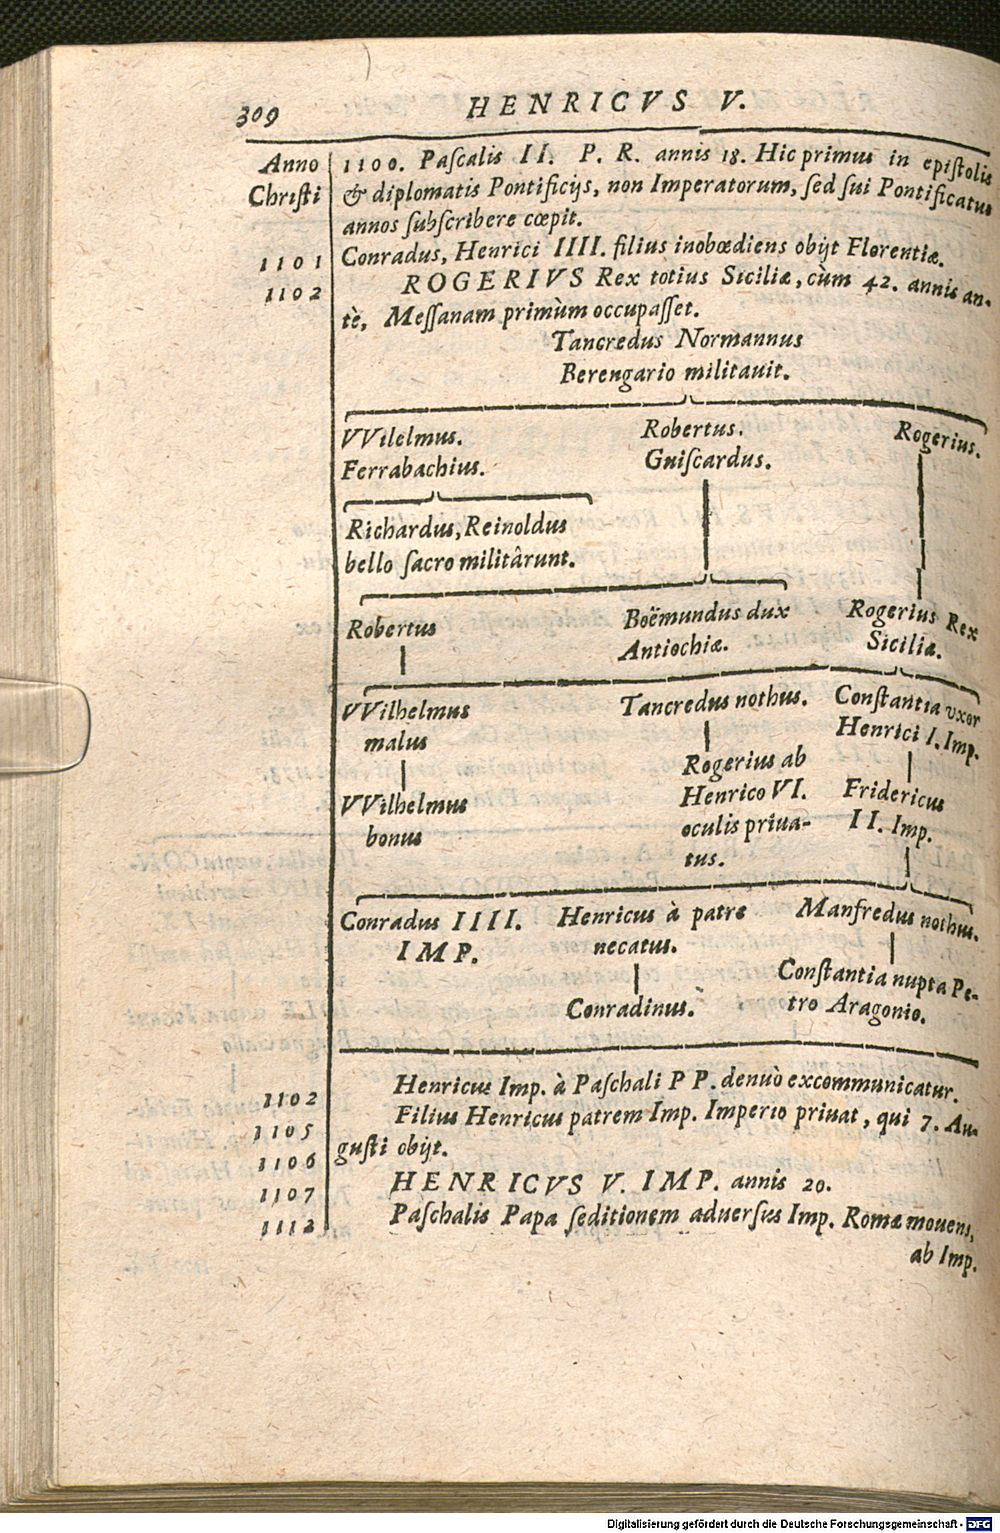 309 HENRICVS V.
Anno 1100. Paſcalis II. P. R. annis 18. Hic primus in epiſtolis
Chriſti & diplomatis Pontificijs, non Imperatorum, ſed ſui Pontificatus
annos ſubſcribere cœpit.
1101 Conradus, Henrici IIII. filius inobœdiens obijt Florentiæ.
1102 ROGERIVS Rex totius Siciliæ, cùm 42. annis an-
tè, Meſſanam primùm occupaſſet.
Tancredus Normannus
Berengario militauit.
VVilelmus. Robertus. Rogerius.
Ferrabachius. Guiſcardus.
Richardus, Reinoldus
bello ſacro militârunt.
Robertus Boëmundus dux Rogerius Rex
Antiochiæ. Siciliæ.
VVilhelmus Tancredus nothus. Conſtantia vxor
malus Henrici I. Imp.
Rogerius ab
VVilhelmus Henrico VI. Fridericus
bonus oculis priua- II. Imp.
tus.
Conradus IIII. Henricus à patre Manfredus nothus.
IMP. necatus.
Conſtantia nupta Pe-
Conradinus. tro Aragonio.
1102 Henricus Imp. à Paſchali PP. denuò excommunicatur.
1105 Filius Henricus patrem Imp. Imperio priuat, qui 7. Au-
1106 guſti obijt.
1107 HENRICVS V. IMP. annis 20.
1112 Paſchalis Papa ſeditionem aduerſus Imp. Romæ mouens,
ab Imp.
Digitalisierung gefördert durch die Deutsche Forschungsgemeinschaft - DFG